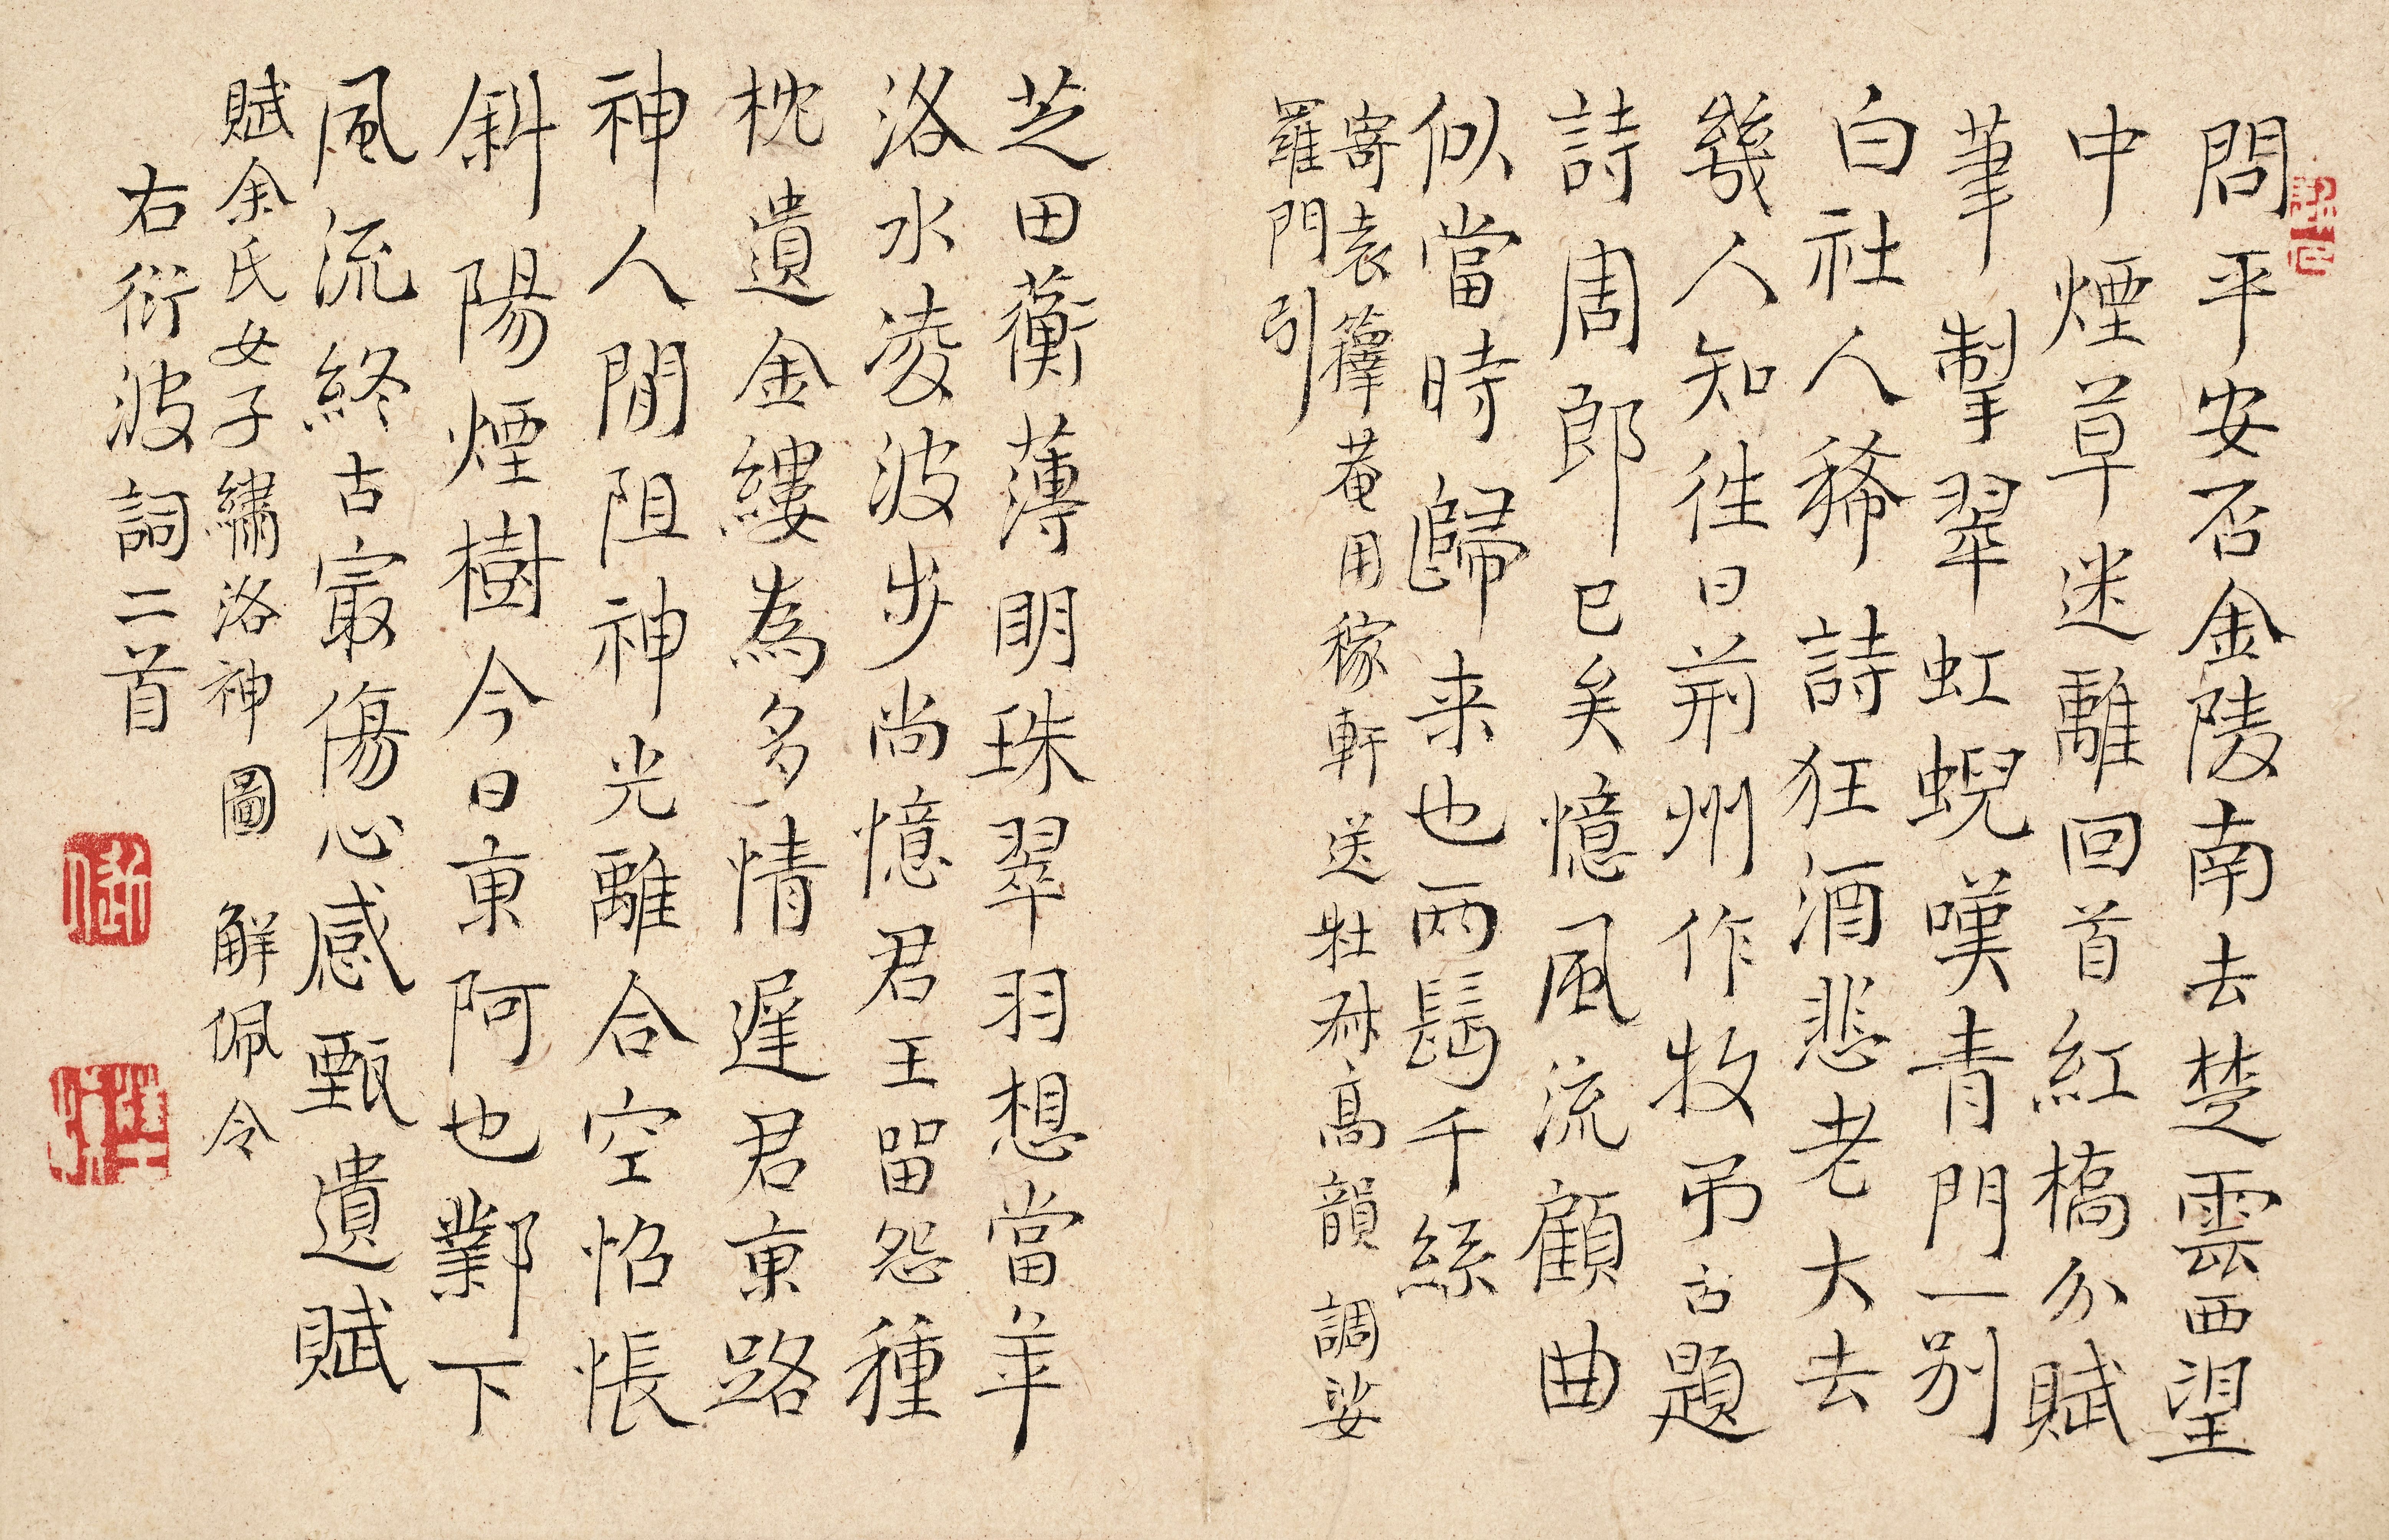 問平安否金陵南去楚雲西望
中煙草迷離回首紅橋分賦
筆掣翠虹蜺嘆青門一別
白社人稀詩狂酒悲老大去
幾人知往日荊州作牧弔古題
詩周郎已矣憶風流顧曲
似當時歸来也兩鬢千絲
寄袁籜菴用稼軒送壯高韻調娑
羅門引
芝田蘅薄明珠翠羽想當年
洛水凌波步尚憶君王留怨種
枕遺金縷為多情遲君東路
神人間阻神光離合空怊悵
斜陽煙樹今日東阿也鄴下
風流終古冣傷心感甄遺賦
賦余氏女子繡洛神圖 解佩令
右衍波詞二首